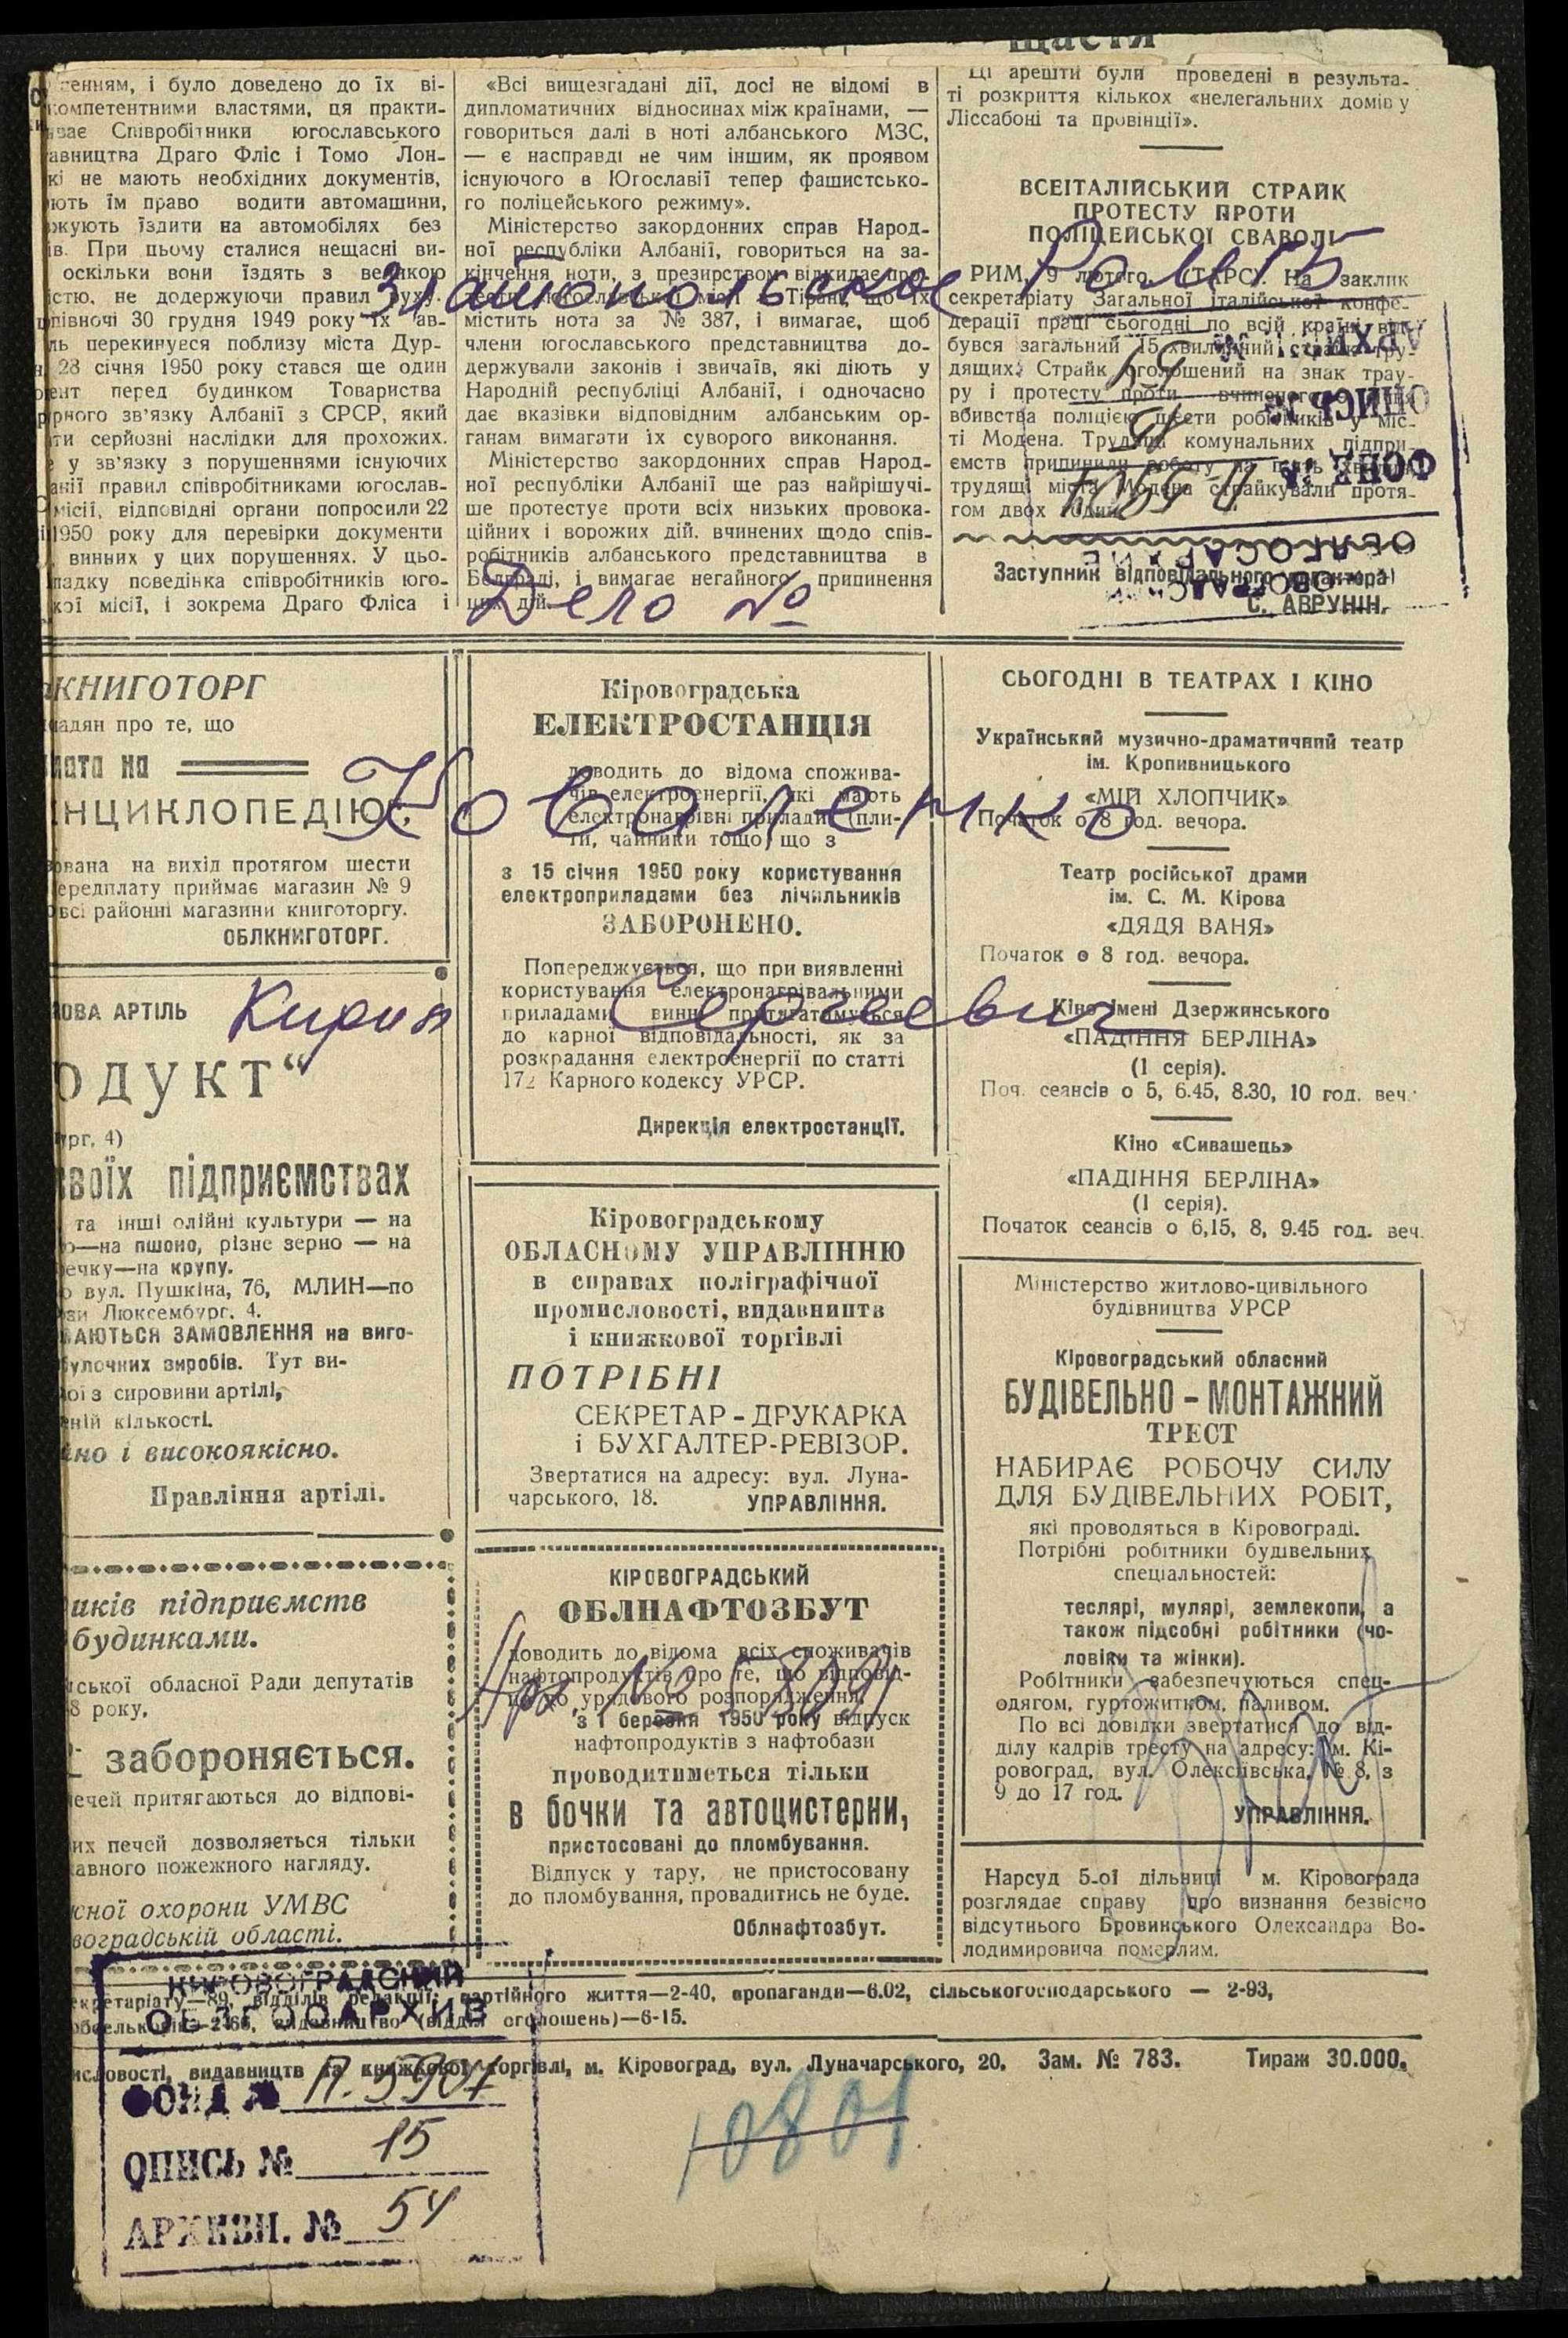 щастя
генням, і було доведено до їх ві-
компетентними властями, ця практи-
Співробітники югославського
авництва Драго Фліс і Томо Лон-
кі не мають необхідних документів,
ють їм право водити автомашини,
жують їздити на автомобілях без
ів. При цьому сталися нещасні ви-
оскільки вони їздять з великою
істю, не додержуючи правил руху.
півночі 30 грудня 1949 року їх ав-
ль перекинувся поблизу міста Дур-
28 січня 1950 року стався ще один
перед будинком Товариства
рного зв’язку Албанії з СРСР, який
ти серйозні наслідки для прохожих.
у зв’язку з порушеннями існуючих
анії правил співробітниками югослав-
місії, відповідні органи попросили 22
1950 року для перевірки документи
винних у цих порушеннях. У цьо-
падку поведінка співробітників юго-
кої місії, і зокрема Драго Фліса і
«Всі вищезгадані дії, досі не відомі в
дипломатичних відносинах між країнами, —
говориться далі в ноті албанського МЗС,
— є насправді не чим іншим, як проявом
існуючого в Югославії тепер фашистсько-
го поліцейського режиму».
Міністерство закордонних справ Народ-
ної республіки Албанії, говориться на за-
кінчення ноти, з презирством відкидає про-
югославської місії в Тірані, що їх
містить нота за № 387, і вимагає, щоб
члени югославського представництва до-
держували законів і звичаїв, які діють у
Народній республіці Албанії, і одночасно
дає вказівки відповідним албанським ор-
ганам вимагати їх суворого виконання.
Міністерство закордонних справ Народ-
ної республіки Албанії ще раз найрішучі-
ше протестує проти всіх низьких провока-
ційних і ворожих дій, вчинених щодо спів-
робітників албанського представництва в
Белграді, і вимагає негайного припинення
цих дій.
Ці арешти були проведені в результа-
ті розкриття кількох «нелегальних домів у
Ліссабоні та провінції».
ВСЕІТАЛІЙСЬКИЙ СТРАЙК
ПРОТЕСТУ ПРОТИ
ПОЛІЦЕЙСЬКОЇ СВАВОЛІ
РИМ, 9 лютого. (ТАРС). На заклик
секретаріату Загальної італійської конфе-
дерації праці сьогодні по всій країні від-
бувся загальний 15-хвилинний страйк тру-
дящих. Страйк оголошений на знак трау-
ру і протесту проти вчиненого
вбивства поліцією шести робітників у міс-
ті Модена. Трудящі комунальних підпри-
ємств припинили роботу на п’ять хвилин,
трудящі міста Модена страйкували протя-
гом двох годин.
Заступник відповідального редактора
С. АВРУНІН.
Златопольское РОМГБ
Дело №
Коваленко
Кирил
Сергеевич
Арх. № 5309
АРХИВН. №
ОПИСЬ №
ФОНД №
ОБЛГОСАРХИВ
54
15
П-5907
КНИГОТОРГ
адян про те, що
лата на
НЦИКЛОПЕДІЮ
ована на вихід протягом шести
ередплату приймає магазин № 9
всі районні магазини книготоргу.
ОБЛКНИГОТОРГ.
ОВА АРТІЛЬ
ОДУКТ“
ург, 4)
своїх підприємствах
та інші олійні культури — на
о—на пшоно, різне зерно — на
ечку—на крупу.
о вул. Пушкіна, 76, МЛИН—по
зи Люксембург, 4.
АЮТЬСЯ ЗАМОВЛЕННЯ на виго-
булочних виробів. Тут ви-
ої з сировини артілі,
еній кількості.
но і високоякісно.
Правління артілі.
иків підприємств
будинками.
ської обласної Ради депутатів
8 року,
забороняється.
ечей притягаються до відпові-
их печей дозволяється тільки
авного пожежного нагляду.
сної охорони УМВС
воградській області.
Кіровоградська
ЕЛЕКТРОСТАНЦІЯ
доводить до відома спожива-
чів електроенергії, які мають
електронагрівні прилади (пли-
ти, чайники тощо) що з
з 15 січня 1950 року користування
електроприладами без лічильників
ЗАБОРОНЕНО.
Попереджується, що при виявленні
користування електронагрівальними
приладами винні притягатимуться
до карної відповідальності, як за
розкрадання електроенергії по статті
172 Карного кодексу УРСР.
Дирекція електростанції.
Кіровоградському
ОБЛАСНОМУ УПРАВЛІННЮ
в справах поліграфічної
промисловості, видавництв
і книжкової торгівлі
ПОТРІБНІ
СЕКРЕТАР-ДРУКАРКА
і БУХГАЛТЕР-РЕВІЗОР.
Звертатися на адресу: вул. Луна-
чарського, 18. УПРАВЛІННЯ.
КІРОВОГРАДСЬКИЙ
ОБЛНАФТОЗБУТ
доводить до відома всіх споживачів
нафтопродуктів про те, що відповід-
но до урядового розпорядження,
з 1 березня 1950 року відпуск
нафтопродуктів з нафтобази
проводитиметься тільки
в бочки та автоцистерни,
пристосовані до пломбування.
Відпуск у тару, не пристосовану
до пломбування, провадитись не буде.
Облнафтозбут.
СЬОГОДНІ В ТЕАТРАХ І КІНО
Український музично-драматичний театр
ім. Кропивницького
«МІЙ ХЛОПЧИК»
Початок о 8 год. вечора.
Театр російської драми
ім. С. М. Кірова
«ДЯДЯ ВАНЯ»
Початок о 8 год. вечора.
Кіно імені Дзержинського
«ПАДІННЯ БЕРЛІНА»
(I серія).
Поч. сеансів о 5, 6.45, 8.30, 10 год. веч.
Кіно «Сивашець»
«ПАДІННЯ БЕРЛІНА»
(I серія).
Початок сеансів о 6,15, 8, 9.45 год. веч.
Міністерство житлово-цивільного
будівництва УРСР
Кіровоградський обласний
БУДІВЕЛЬНО-МОНТАЖНИЙ
ТРЕСТ
НАБИРАЄ РОБОЧУ СИЛУ
ДЛЯ БУДІВЕЛЬНИХ РОБІТ,
які проводяться в Кіровограді.
Потрібні робітники будівельних
спеціальностей:
теслярі, мулярі, землекопи, а
також підсобні робітники (чо-
ловіки та жінки).
Робітники забезпечуються спец-
одягом, гуртожитком, паливом.
По всі довідки звертатися до від-
ділу кадрів тресту на адресу: м. Кі-
ровоград, вул. Олексіївська, № 8, з
9 до 17 год.
УПРАВЛІННЯ.
Нарсуд 5-ої дільниці м. Кіровограда
розглядає справу про визнання безвісно
відсутнього Бровинського Олександра Во-
лодимировича померлим.
екретаріату—89, відділів редакції: партійного життя—2-40, пропаганди—6.02, сільськогосподарського — 2-93,
2-66, видавництво (відділ оголошень)—6-15.
исловості, видавництв та книжкової торгівлі, м. Кіровоград, вул. Луначарського, 20. Зам. № 783. Тираж 30.000.
КИРОВОГРАДСКИЙ
ОБЛГОСАРХИВ
ФОНД № П-5907
ОПИСЬ № 15
АРХИВН. № 54
10801